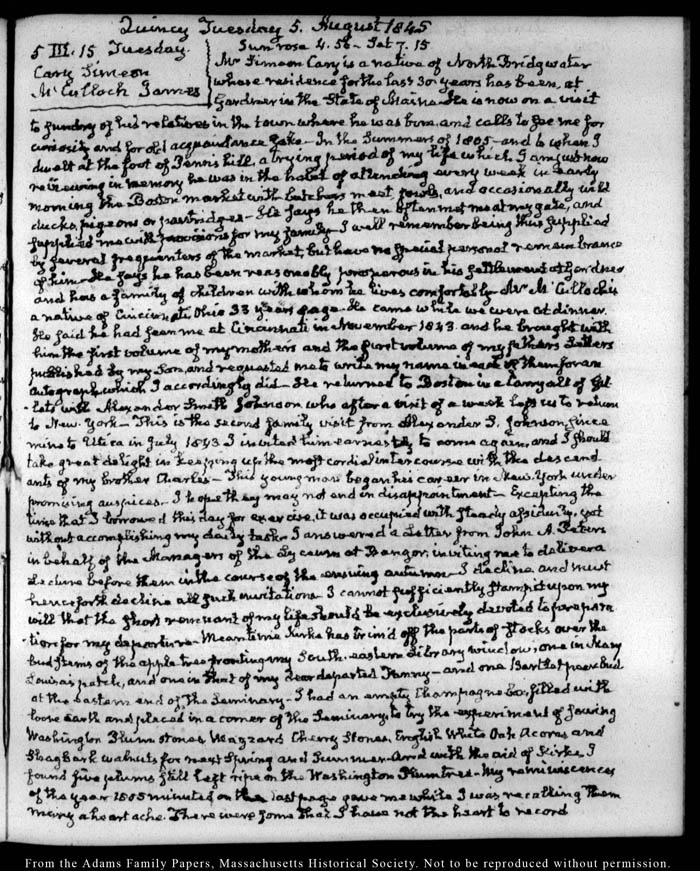 Quincy Tuesday 5. August 1845
5 III. 15 Tuesday.
Cary Simeon
McCulloch James
Sun rose 4.56 - Set 7.15
Mr Simeon Cary is a native of North Bridgwater
whose residence for the last 30 years has been, at
Gardner in the State of Maine. He is now on a visit
to sundry of his relatives in the town where he was born and calls to see me for
curiosity and for old acquaintance sake - In the Summers of 1805 - and 6 when I
dwelt at the foot of Penn's hill, a trying period of my life which I am just now
reviewing in memory he was in the habit of attending every week in early
morning the Boston market with butchers meat fowls, and occasionally wild
ducks, pigeons or partridges - He says he then often met me at my gate, and
supplied me with provisions for my family - I well remember being thus supplied
by several frequenters of the market, but have no special personal remembrance
of him - He says he has been reasonably prosperous in his settlement at Gardner
and has a family of children with whom he lives comfortably - Mr McCulloch is
a native of Cincinnati Ohio 33 years of age. He came while we were at dinner.
He said he had seen me at Cincinnati in November 1843. and he brought with
him the first volume of my mother's and the first volume of my father's Letters
published by my Son, and requested me to write my name in each of them for an
autograph, which I accordingly did - He returned to Boston in a Carryall of Gil-
letts with Alexander Smith Johnson who after a visit of a week left us to return
to New-York - This is the second family visit from Alexander S. Johnson since
mine to Utica in July 1843 I invited him earnestly to come again, and I should
take great delight in keeping up the most cordial intercourse with the descend
ants of my brother Charles - This young man began his career in New-York under
promising auspices - I hope they may not end in disappointment - Excepting the
time that I borrowed this day for exercise, it was occupied with steady assiduity, yet
without accomplishing my daily task. I answered a Letter from John A. Peters
in behalf of the Managers of the Lyceum at Bangor, inviting me to deliver a
Lecture before them in the course of the ensuing autumn - I decline and must
henceforth decline all such invitations I cannot sufficiently stamp it upon my
will that the short remnant of my life should be exclusively devoted to prepara
tion for my departure - Meantime Kirke has trim'd off the parts of stocks over the
bud stems of the apple tree fronting my South-eastern Library window, one in Mary
Louisa's patch, and one in that of my dear departed Fanny - and one Bartlet pear bud
at the eastern end of the Seminary - I had an empty Champagne box filled with
loose earth and placed in a corner of the Seminary, to try the experiment of sowing
Washington Plum stones Mazzard Cherry Stones, English White Oak Acorns and
Shagbark walnuts for next Spring and Summer - And with the aid of Kirke I
found five plums still left ripe on the Washington Plumtree - My reminiscences
of the year 1805 minuted on the last page gave me while I was recalling them
many a heart ache. There were some that I have not the heart to record
From the Adams Family Papers, Massachusetts Historical Society. Not to be reproduced without permission.